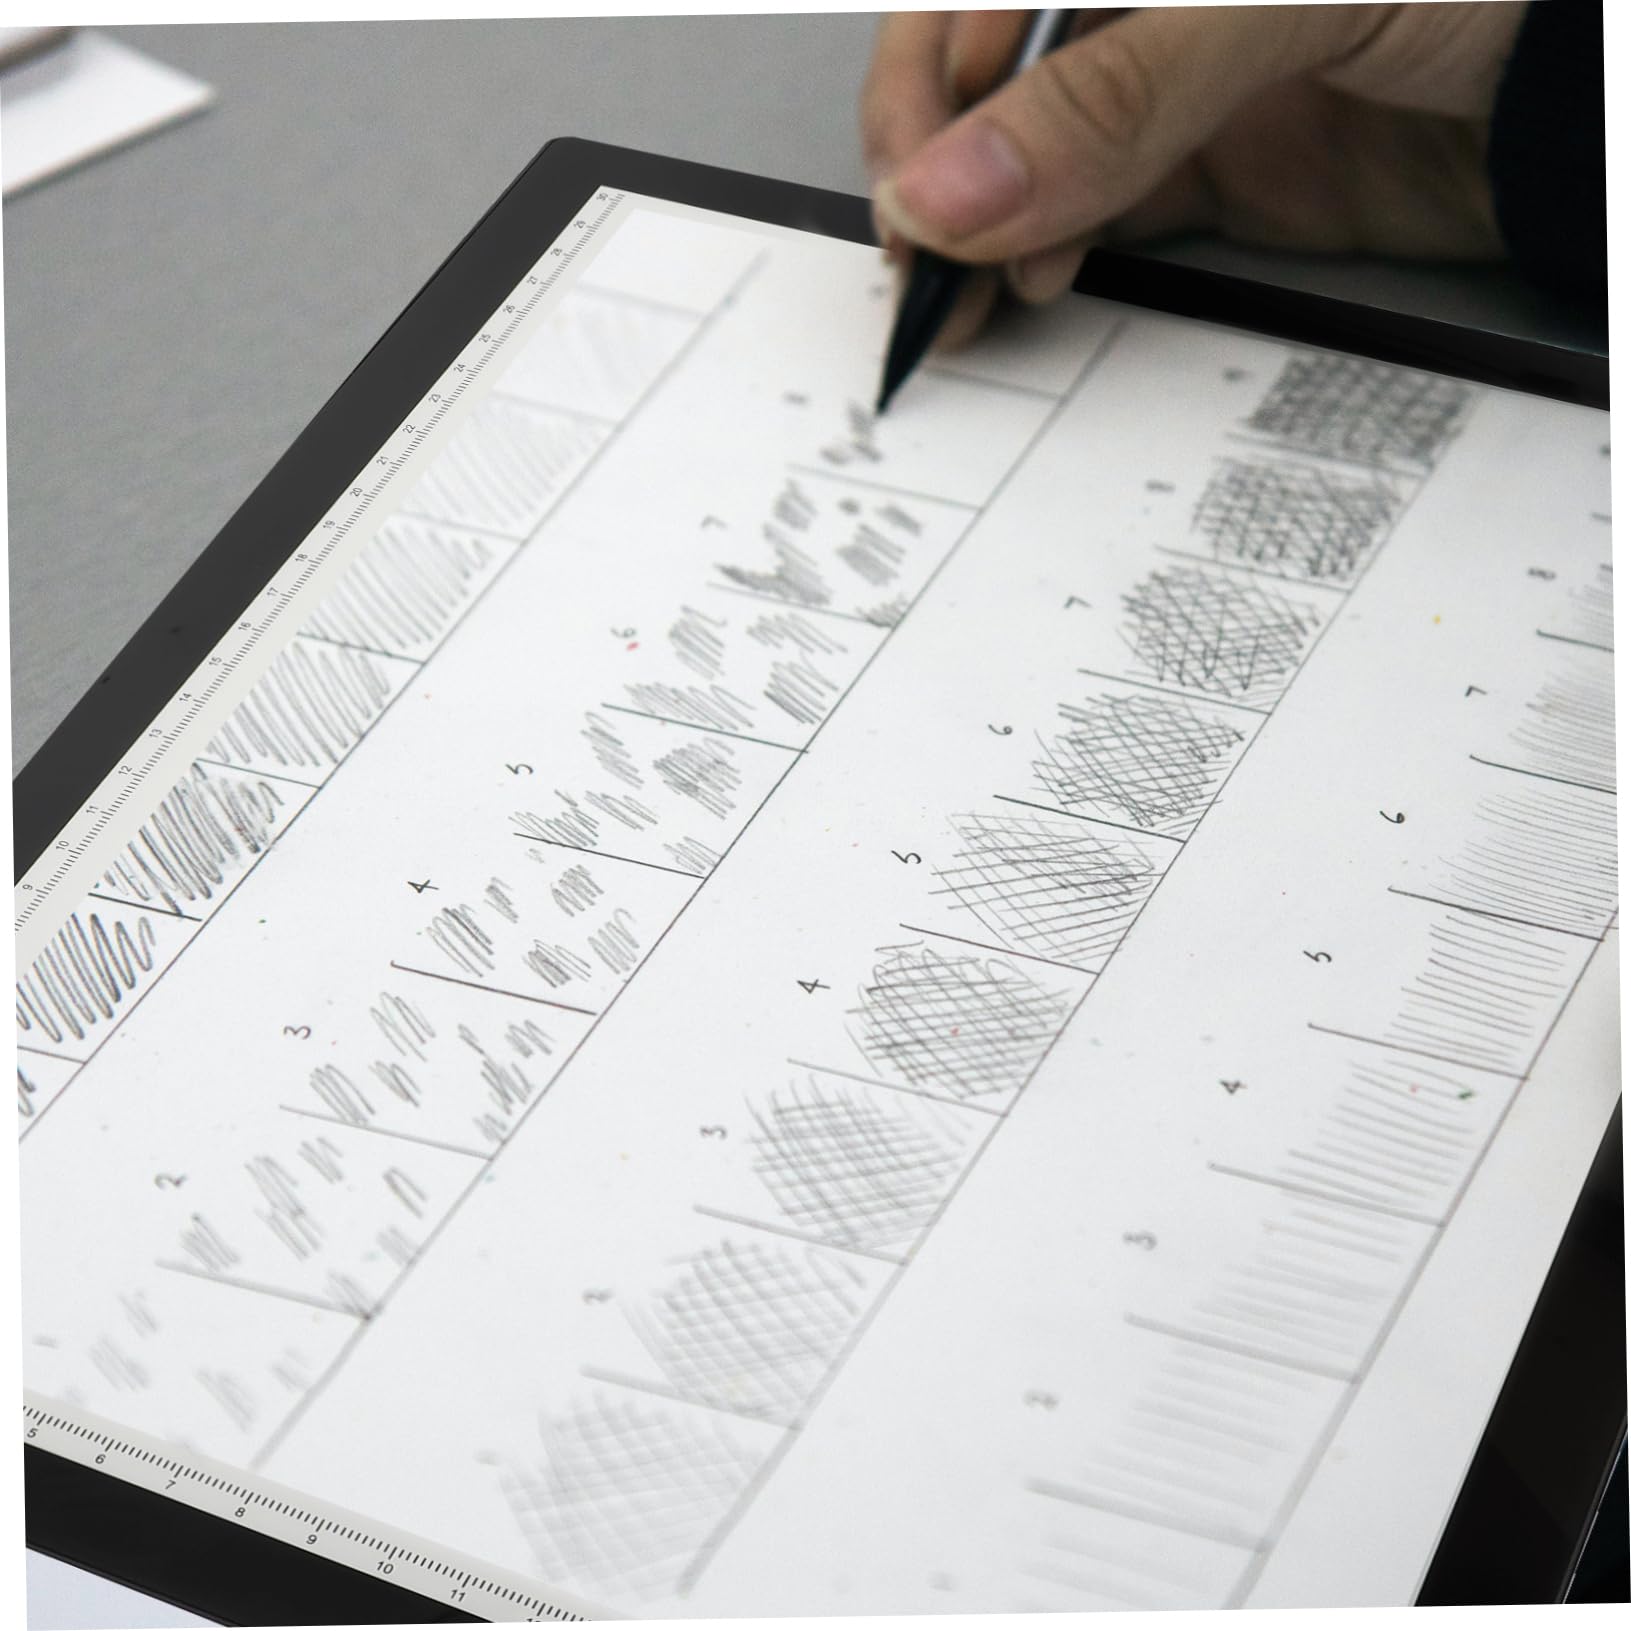 30 29 28 27 26 25 24 23 22 21 20 19 18 17 16 15 14 13 12 11 10 9
8 7 6 5 4 3 2 1
9 8 7 6 5 4 3 2
8 7 6 5 4 3 2
5 6 7 8 9 10 11